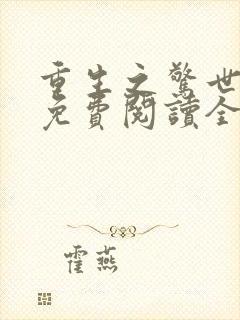 重生之驚世
免費閱讀全
霍燕